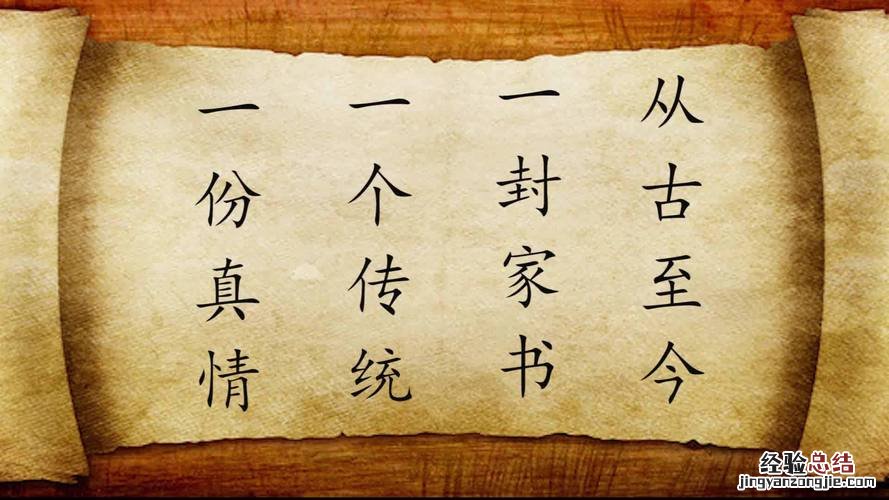 从古至今
一封家书
一个传统
一份真情
经验总结
jingyanzongjie.com